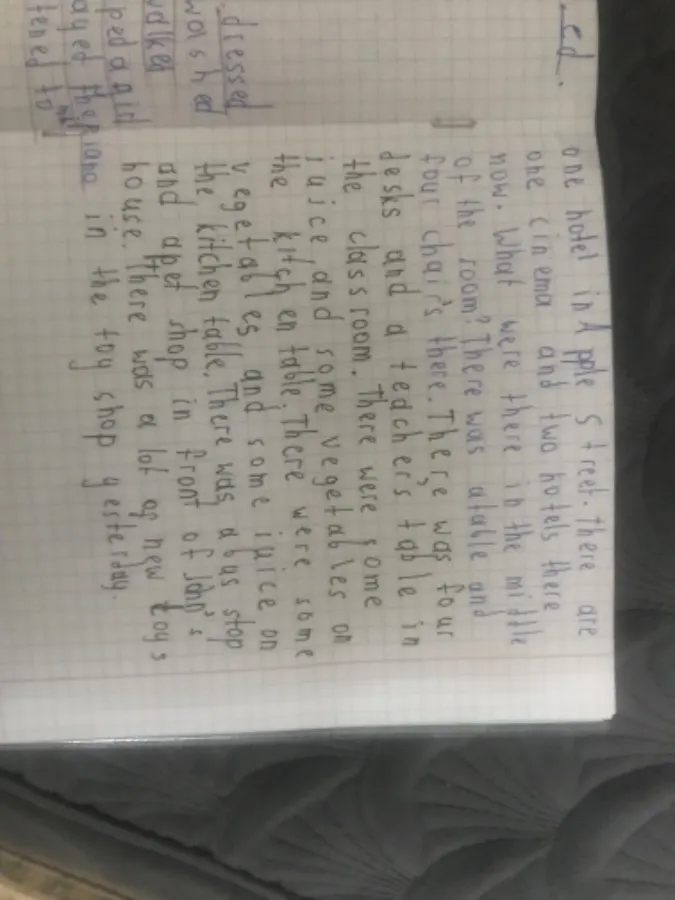 ed.
one hotel in Apple Street. there are
one cinema and two hotels there
now. What were there in the middle
of the room? There was atable and
four chair's there. There was four
desks and a teacher's table in
the classroom. There were some
juice and some vegetables on
the kitchen table. There were some
vegetables and some juice on
the kitchen table. There was abus stop
and apet shop in front of Jan's
house. There was a lot of new toys
in the toy shop yesterday.
dressed
washed
walked
ped a girl
ayed the piano
tened to